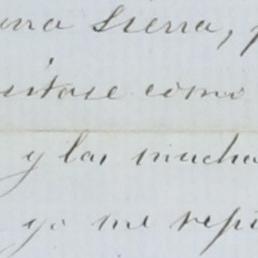 una Sierra, p
sitase como
y las mucha
yo me repi